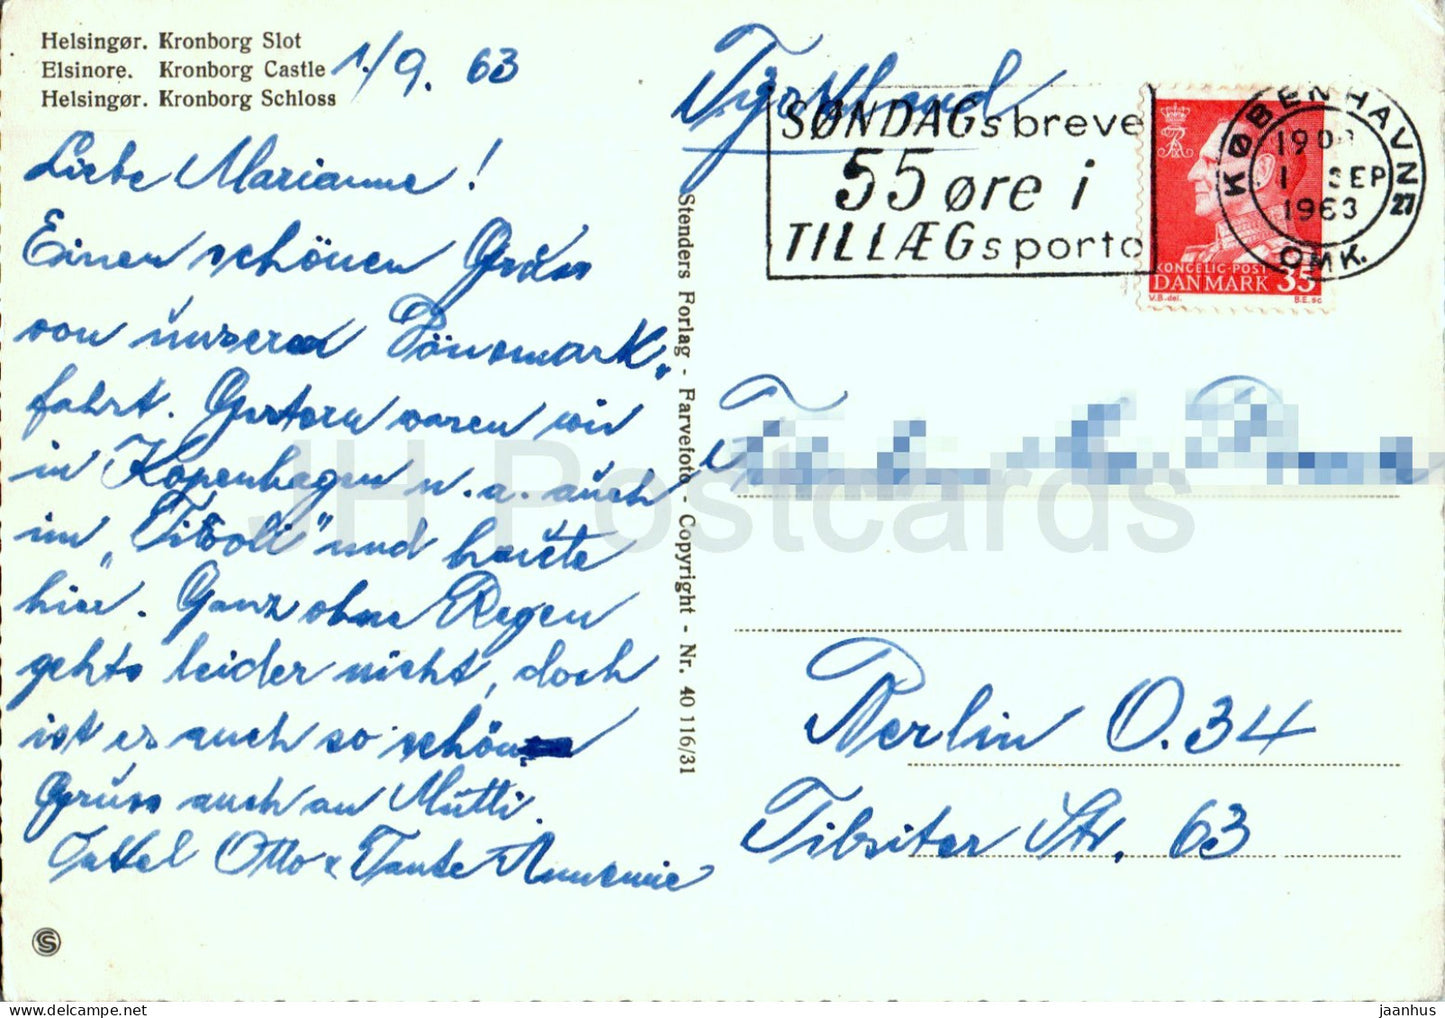 Helsingør. Kronborg Slot
Elsinore. Kronborg Castle
Helsingør. Kronborg Schloss
1./9. 63
Liebe Marianne!
Einen schönen Gruss
von unserer Dänemark-
fahrt. Gestern waren wir
in Kopenhagen u.a. auch
im „Tivoli" und heute
hier. Ganz ohne Regen
gehts leider nicht, doch
ist es auch so schön
Gruss auch an Mutti.
Onkel Otto & Tante Annemie
Stenders Forlag - Farvefoto - Copyright - Nr. 40 116/31
SØNDAGsbreve
55 øre i
TILLÆGsporto
KØBENHAVN
1 SEP
1963
27
OMK.
KONGELIG-POST
DANMARK 35
V.B.del. B.E.sc
Berlin O.34
Tilsiter Str. 63
JH Postcards
jaanhus